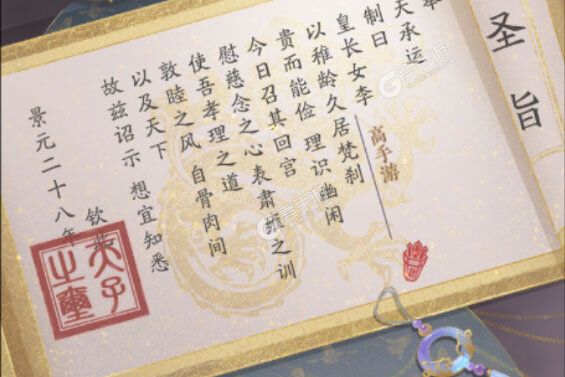 圣旨
奉
天承运
制曰
皇长女李
高手游
以稚龄久居梵刹
贵而能俭 理识幽闲
今日召其回宫
慰慈念之心 表肃雍之训
使吾孝理之道
敦睦之风 自骨肉间
以及天下
故兹诏示 想宜知悉
钦此
景元二十八年
天子之玺